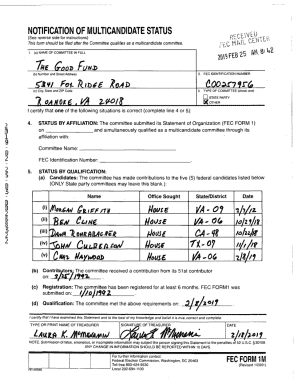 NOTIFICATION OF MULTICANDIDATE STATUS
(See reverse side for instructions)
This form should be filed after the Committee qualifies as a multicandidate committee.
RECEIVED
FEC MAIL CENTER
2019 FEB 25 AM 8:42
1. (a) NAME OF COMMITTEE IN FULL
THE GOOD FUND
(b) Number and Street Address
5841 FOX RIDGE ROAD
2. FEC IDENTIFICATION NUMBER
C00257956
(c) City, State and ZIP Code
ROANOKE, VA 24018
3. TYPE OF COMMITTEE (check one)
STATE PARTY
OTHER
I certify that one of the following situations is correct (complete line 4 or 5):
4. STATUS BY AFFILIATION: The committee submitted its Statement of Organization (FEC FORM 1)
on and simultaneously qualified as a multicandidate committee through its
affiliation with:
Committee Name:
FEC Identification Number:
5. STATUS BY QUALIFICATION:
(a) Candidates: The committee has made contributions to the five (5) federal candidates listed below
(ONLY State party committees may leave this blank):
Name Office Sought State/District Date
(i) MORGAN GRIFFITH HOUSE VA-09
(ii) BEN CLINE HOUSE VA-06
(iii) DANA ROHRABACHER HOUSE CA-48
(iv) JOHN CULBERSON HOUSE TX-07 11/1/18
(v) CHAZ HAYWOOD HOUSE VA-06 2/8/19
(b) Contributors: The committee received a contribution from its 51st contributor
on
(c) Registration: The committee has been registered for at least 6 months. FEC FORM 1 was
submitted on 1/10/1992
(d) Qualification: The committee met the above requirements on 2/8/2019
I certify that I have examined this Statement and to the best of my knowledge and belief it is true, correct and complete.
TYPE OR PRINT NAME OF TREASURER
SIGNATURE OF TREASURER
DATE
2/18/2019
NOTE: Submission of false, erroneous, or incomplete information may subject the person signing this Statement to the penalties of
ANY CHANGE IN INFORMATION SHOULD BE REPORTED WITHIN 10 DAYS
For further information contact:
Federal Election Commission, Washington, DC 20463
Toll-free 800-424-9530
Local 202-694-1100
FEC FORM 1M